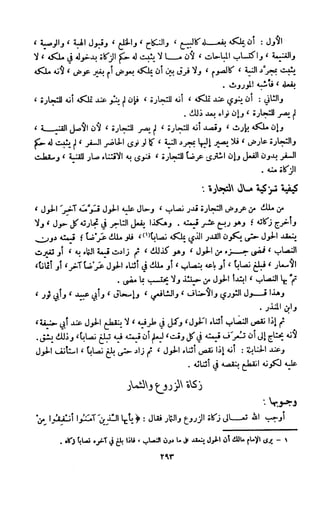 الأول : أن يملكه بفعله كالبيع ، والنكاح ، والخلع ، وقبول الهبة ، والوصية ،
والغنيمة ، واكتساب المباحات ، لأن ما لا يثبت له حكم الزكاة بدخوله في ملكه ، لا
يثبت بمجرد النية ، كالصوم ، ولا فرق بين أن يملكه بعوض أم بغير عوض ، لأنه ملكه
بفعله ، فأشبه الموروث .
والثاني : أن ينوي عند تملكه ، أنه للتجارة ، فإن لم ينو عند تملكه أنه للتجارة ،
لم يصر للتجارة ، وإن نواه بعد ذلك .
وإن ملكه بإرث ، وقصد أنه للتجارة ، لم يصر للتجارة ، لأن الأصل القنيــة ،
والتجارة عارض ، فلا يصير إليها بمجرد النية ، كما لو نوى الحاضر السفر ، لم يثبت له حكم
السفر بدون الفعل وإن اشترى عرضاً للتجارة ، فنوى به الاقتناء صار للقنية ، وسقطت
الزكاة منه .
كيفية تزكية مال التجارة :
من ملك من عروض التجارة قدر نصاب ، وحال عليه الحول قومه آخر الحول ،
وأخرج زكاته ؛ وهو ربع عشر قيمته . وهكذا يفعل التاجر في تجارته كل حول ، ولا
ينعقد الحول حتى يكون القدر الذي يملكه نصاباً (١) ، فلو ملك عرضاً ؛ قيمته دون
النصاب ، فمضى جزء من الحول ، وهو كذلك ، ثم زادت قيمة النماء به ، أو تغيرت
الأسعار ، فبلغ نصاباً ، أو باعه بنصاب ، أو ملك في أثناء الحول عرضاً آخر ، أو أثماناً ،
تم بها النصاب ، ابتدأ الحول من حينئذ ولا يحتسب بما مضى .
وهذا قول الثوري والأحناف ، والشافعي ، وإسحاق ، وأبي عبيد ، وأبي ثور ،
وابن المنذر .
ثم إذا نقص النصاب أثناء الحول ، وكمل في طرفيه ، لا ينقطع الحول عند أبي حنيفة ،
لأنه يحتاج إلى أن تعرف قيمته في كل وقت ، ليعلم أن قيمته فيه تبلغ نصاباً ، وذلك يشق .
وعند الحنابلة : أنه إذا نقص أثناء الحول ، ثم زاد حتى بلغ نصاباً ، استأنف الحول
عليه لكونه انقطع بنقصه في أثنائه .
زكاة الزروع والثمار
وجوبها :
أوجب الله تعــالى زكاة الزروع والثمار فقال : « يأيها الذين آمنوا أنفقوا من
١ – يرى الإمام مالك أن الحول ينعقد على ما دون النصاب ، فاذا بلغ في آخره نصاباً زكاه .
٢٩٣